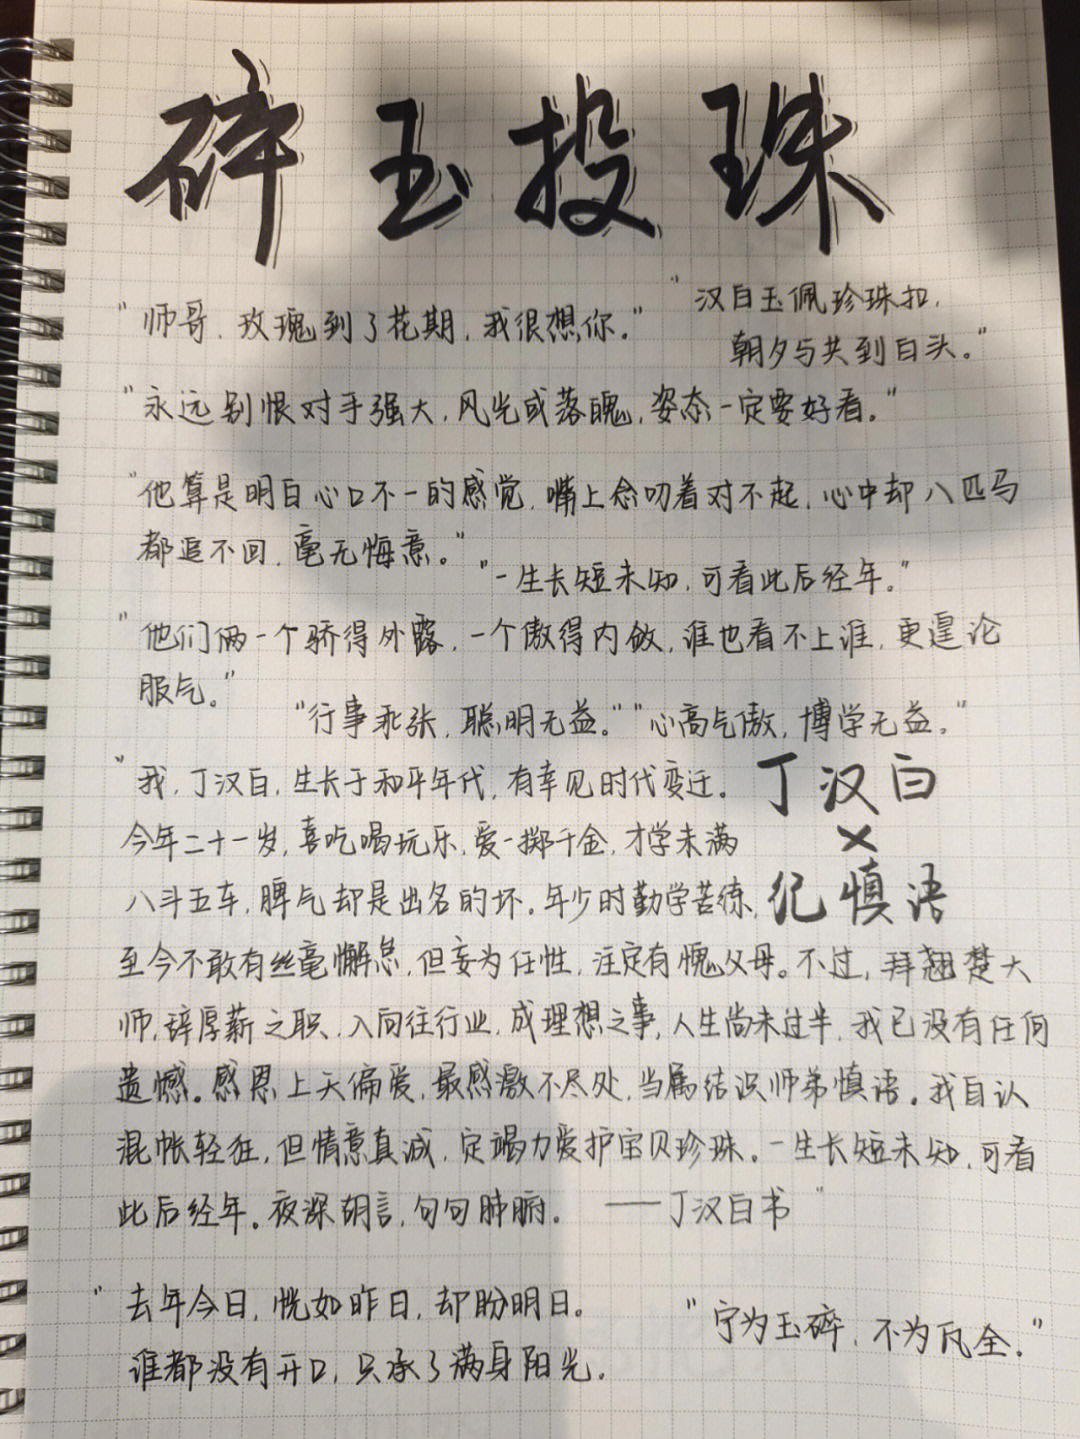 碎玉投珠
"师哥，玫瑰到了花期，我很想你。"
"汉白玉佩珍珠扣，
朝夕与共到白头。"
"永远别恨对手强大，风光或落魄，姿态一定要好看。"
"他算是明白心口不一的感觉，嘴上念叨着对不起，心中却八匹马
都追不回，毫无悔意。"
"一生长短未知，可看此后经年。"
"他们俩一个骄得外露，一个傲得内敛，谁也看不上谁，更遑论
服气。"
"行事乖张，聪明无益。""心高气傲，博学无益。"
"我，丁汉白，生长于和平年代，有幸见时代变迁。
今年二十一岁，喜吃喝玩乐，爱一掷千金，才学未满
八斗五车，脾气却是出名的坏。年少时勤学苦练，
至今不敢有丝毫懈怠，但妄为任性，注定有愧父母。不过，拜翘楚大
师，辞厚薪之职，入向往行业，成理想之事，人生尚未过半，我已没有任何
遗憾。感恩上天偏爱，最感激不尽处，当属结识师弟慎语。我自认
混帐轻狂，但情意真诚，定竭力爱护宝贝珍珠。一生长短未知，可看
此后经年。夜深胡言，句句肺腑。 ——丁汉白书"
丁汉白
×
纪慎语
"去年今日，恍如昨日，却盼明日。
谁都没有开口，只承了满身阳光。
"宁为玉碎，不为瓦全。"